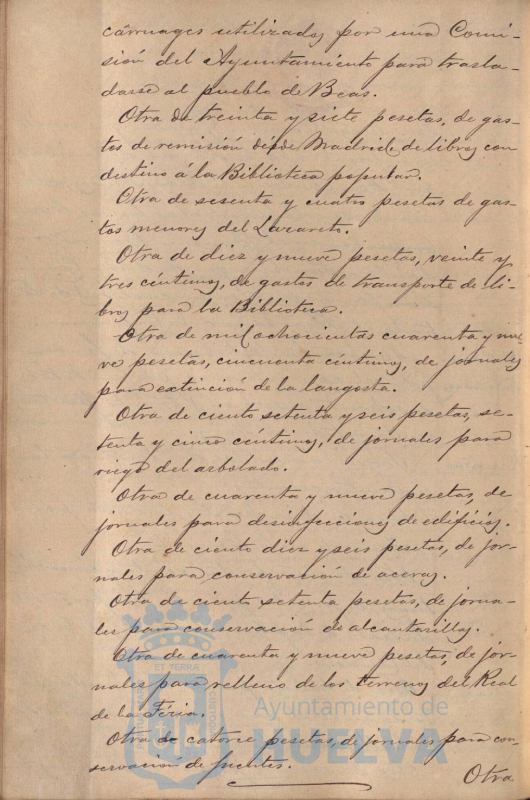 carruages utilizados por una Comi-
sión del Ayuntamiento para trasla-
darse al pueblo de Beas.
Otra de treinta y siete pesetas, de gas-
tos de remisión desde Madrid de libros con
destino á la Biblioteca popular.
Otra de sesenta y cuatro pesetas de gas-
tos menores del Lazareto.
Otra de diez y nueve pesetas, veinte y
tres céntimos, de gastos de transporte de li-
bros para la Biblioteca.
Otra de mil ochocientas cuarenta y nue
ve pesetas, cincuenta céntimos, de jornales
para extinción de la langosta.
Otra de ciento setenta y seis pesetas, se-
tenta y cinco céntimos, de jornales para
riego del arbolado.
Otra de cuarenta y nueve pesetas, de
jornales para desinfecciones de edificios.
Otra de ciento diez y seis pesetas, de jor-
nales para conservación de aceras.
Otra de ciento setenta pesetas, de jorna-
les para conservación de alcantarillas.
Otra de cuarenta y nueve pesetas, de jor-
nales para relleno de los terrenos del Real
de la Féria.
Otra de catorce pesetas, de jornales para con-
servación de fuentes.
Otra
ET TERRÆ
Ayuntamiento de
HUELVA